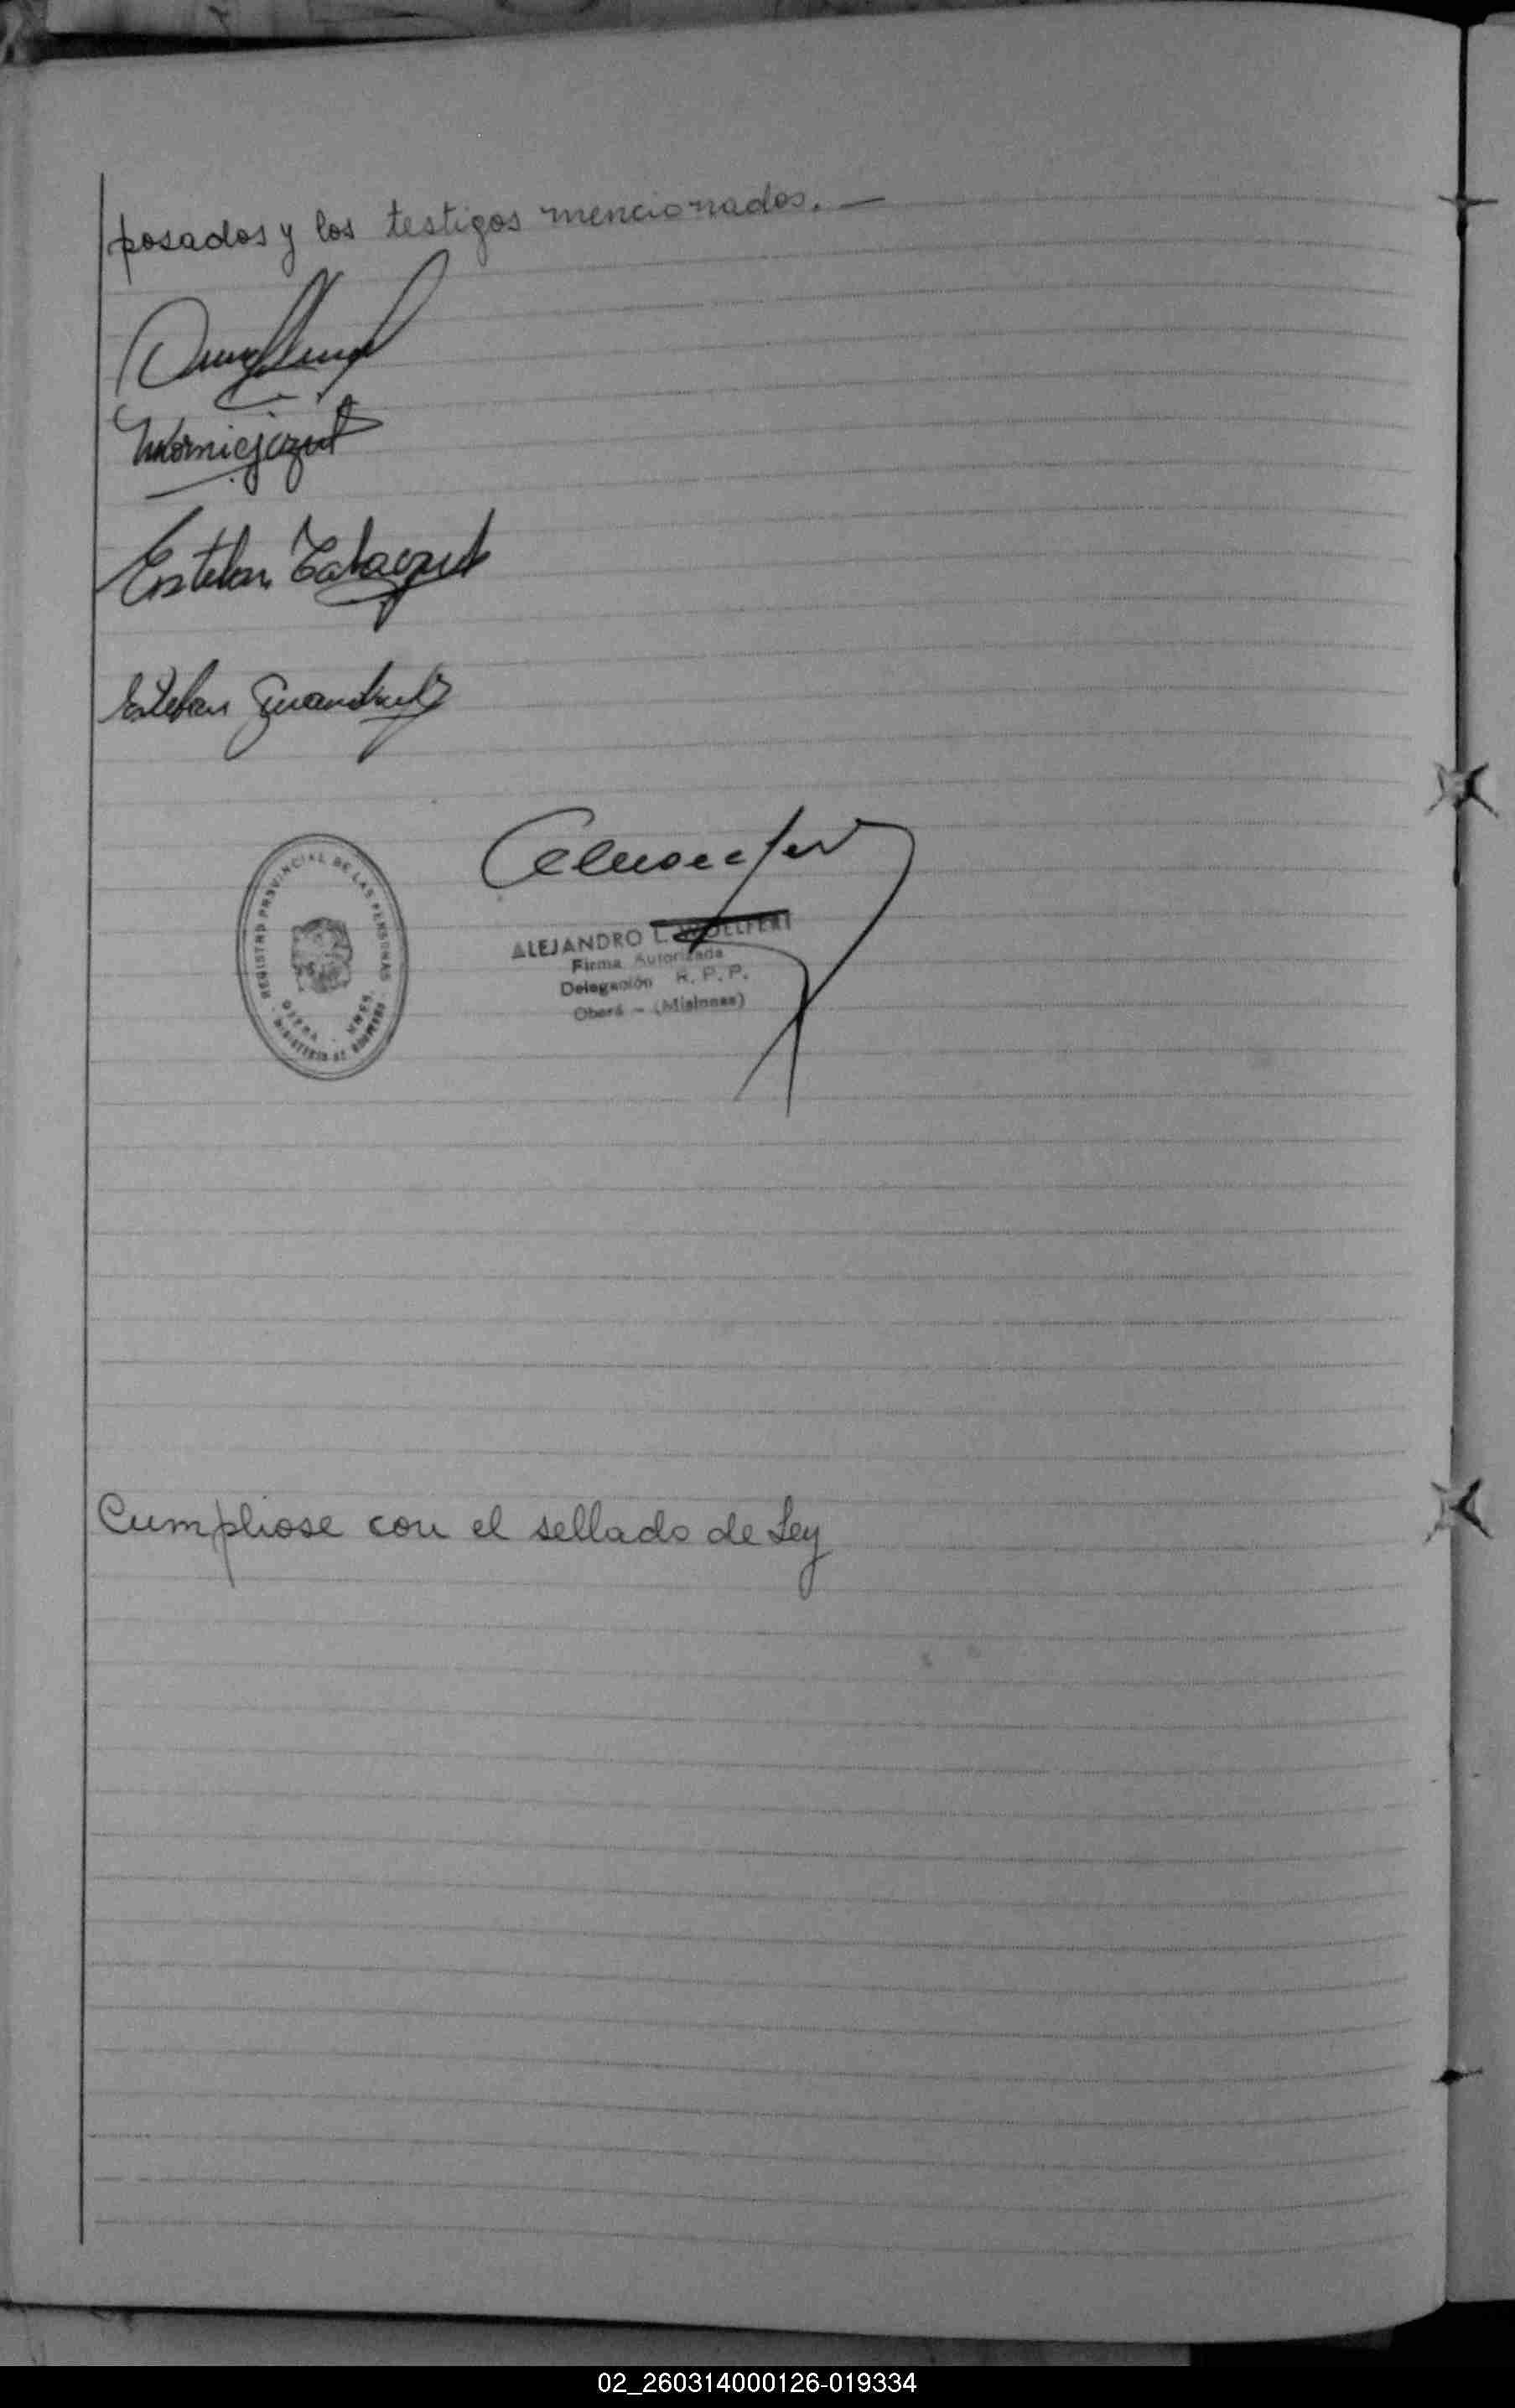 posados y los testigos mencionados. —
Esteban
Esteban
REGISTRO PROVINCIAL DE LAS PERSONAS
OBERA - MNES.
MINISTERIO DE GOBIERNO
ALEJANDRO L. WOELFERT
Firma Autorizada
Delegación R. P. P.
Oberá - (Misiones)
Cumpliose con el sellado de Ley
02_260314000126-019334